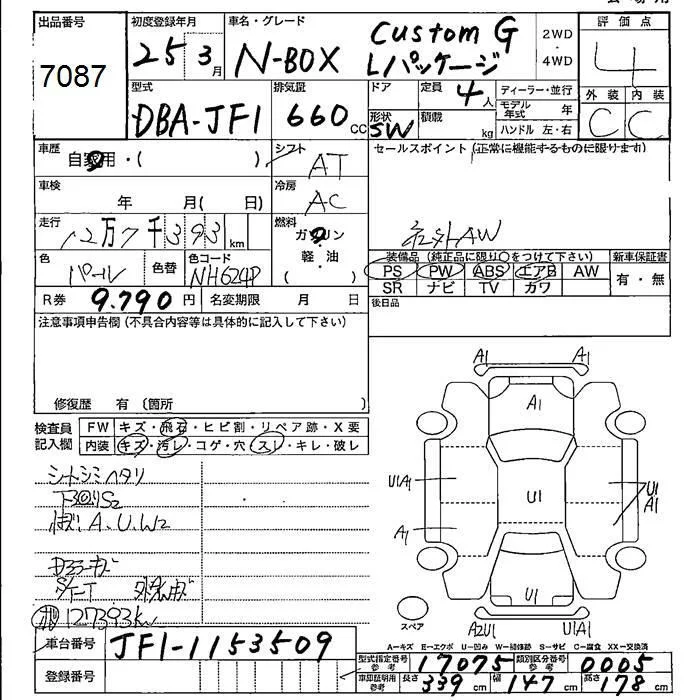 出品番号 初度登録年月 車名・グレード 評価点
7087 25 3月 N-BOX Custom G Lパッケージ 2WD・4WD 4
型式 排気量 ドア 定員 4人 ディーラー・並行 外装 内装
DBA-JF1 660cc 形状 SW 積載 kg モデル年式 年 C C
ハンドル 左・右
車歴 自家用・( ) シフト AT セールスポイント (正常に機能するものに限ります)
車検 年 月( 日) 冷房 AC
走行 12万7千393km 燃料 ガソリン 軽・油 ( ) 社外AW
色 パール 色替 色コード NH624P 装備品 (純正品に限り○をつけて下さい) 新車保証書
PS PW ABS エアB AW 有・無
SR ナビ TV カワ
R券 9.790円 名変期限 月 日 後日品
注意事項申告欄 (不具合内容等は具体的に記入して下さい)
修復歴 有 (箇所
検査員記入欄 FW キズ・飛石・ヒビ割・リペア跡・X要
内装 キズ・汚レ・コゲ・穴・スレ・キレ・破レ
シートシミヘタリ
S2
A、U、W2
キズ
127393km
A1 A1
A1
U1A1 U1 U1 A1
A1
U1
スペア A2U1 U1A1
A=キズ E=エクボ U=凹み W=補修跡 S=サビ C=腐食 XX=交換済
車台番号 JF1-1153509
型式指定番号 参考 17075 類別区分番号 参考 0005
登録番号
車庫証明用 参考 長さ 339cm 幅 147cm 高さ 178cm